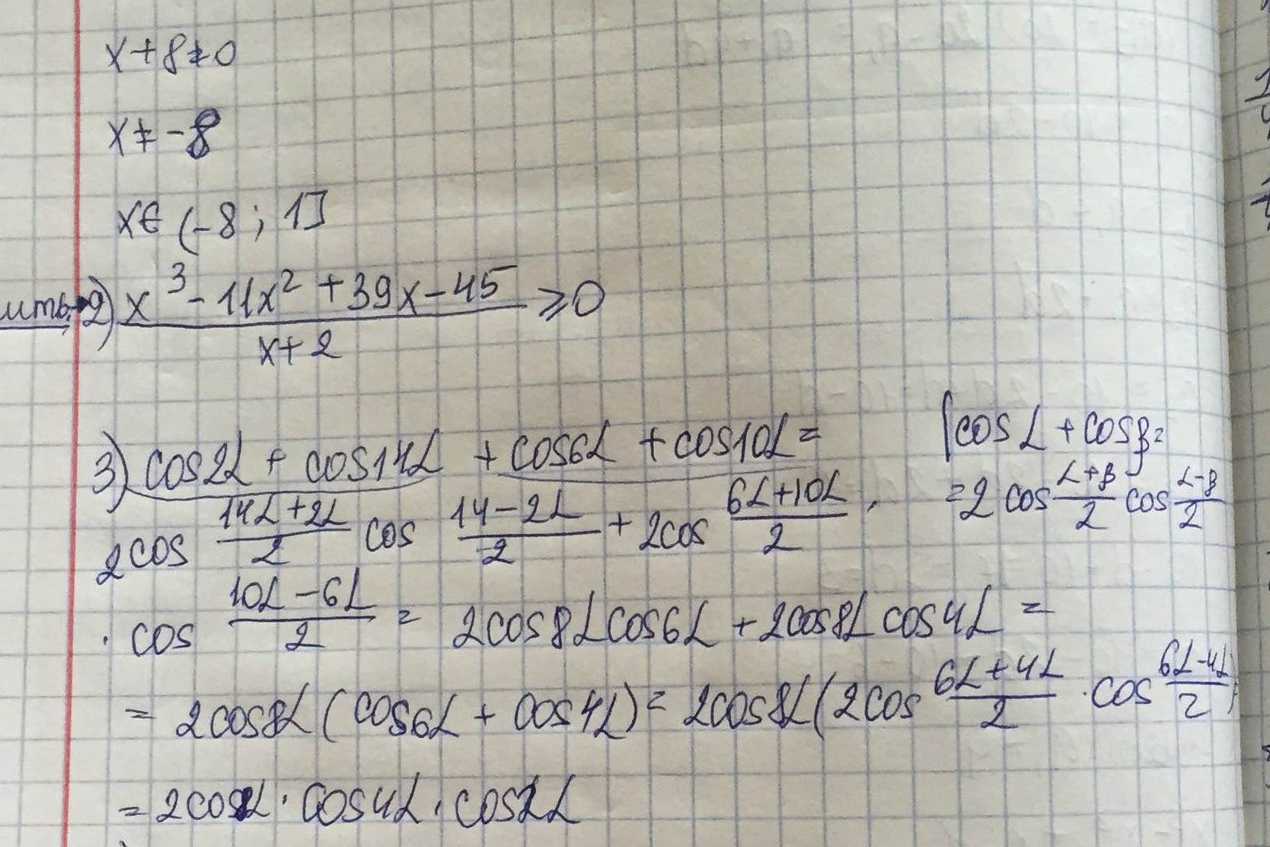 x+8≠0
x≠-8
x∈ (-8; 1]
2) (x³-11x²+39x-45)/(x+2) ≥0
3) cos2α + cos14α + cos6α + cos10α =
[cosα + cosβ =
= 2 cos (α+β)/2 cos (α-β)/2
2cos (14α+2α)/2 cos (14-2α)/2 + 2cos (6α+10α)/2 ·
· cos (10α-6α)/2 = 2cos8αcos6α + 2cos8α cos4α =
= 2cos8α (cos6α + cos4α) = 2cos8α (2cos (6α+4α)/2 · cos (6α-4α)/2)